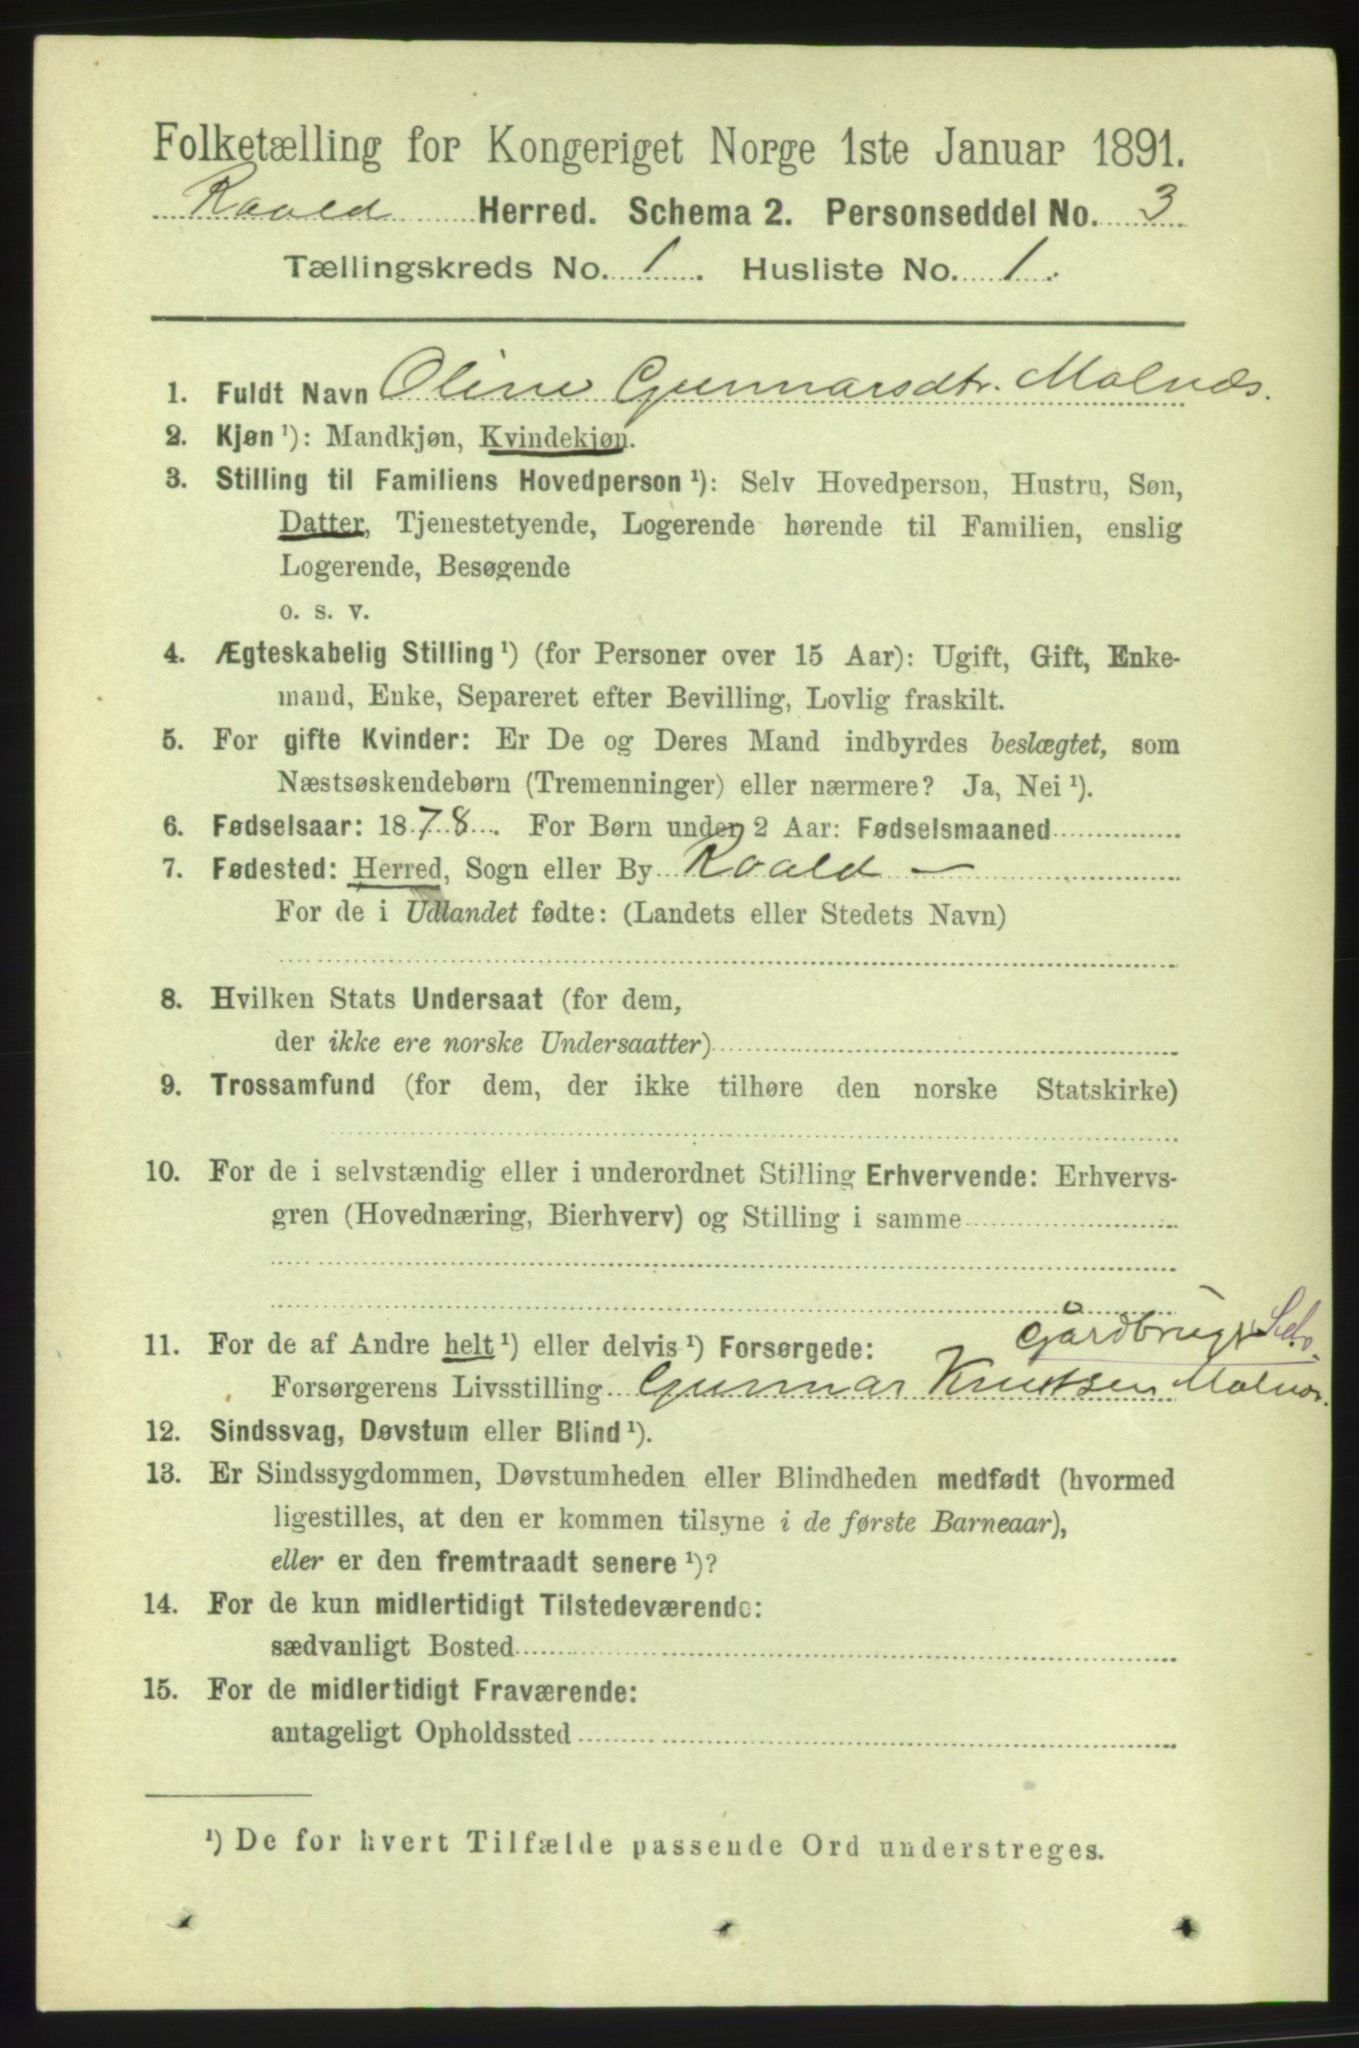 Folketælling for Kongeriget Norge 1ste Januar 1891.
Roald Herred. Schema 2. Personseddel No. 3
Tællingskreds No. 1. Husliste No. 1.
1. Fuldt Navn Oline Gunnarsdtr. Molnæs.
2. Kjøn ¹): Mandkjøn, Kvindekjøn.
3. Stilling til Familiens Hovedperson ¹): Selv Hovedperson, Hustru, Søn,
Datter, Tjenestetyende, Logerende hørende til Familien, enslig
Logerende, Besøgende
o. s. v.
4. Ægteskabelig Stilling ¹) (for Personer over 15 Aar): Ugift, Gift, Enke-
mand, Enke, Separeret efter Bevilling, Lovlig fraskilt.
5. For gifte Kvinder: Er De og Deres Mand indbyrdes beslægtet, som
Næstsøskendebørn (Tremenninger) eller nærmere? Ja, Nei ¹).
6. Fødselsaar: 1878. For Børn under 2 Aar: Fødselsmaaned
7. Fødested: Herred, Sogn eller By Roald –
For de i Udlandet fødte: (Landets eller Stedets Navn)
8. Hvilken Stats Undersaat (for dem,
der ikke ere norske Undersaatter)
9. Trossamfund (for dem, der ikke tilhøre den norske Statskirke)
10. For de i selvstændig eller i underordnet Stilling Erhvervende: Erhvervs-
gren (Hovednæring, Bierhverv) og Stilling i samme
gårdbruger Selv.
11. For de af Andre helt ¹) eller delvis ¹) Forsørgede:
Forsørgerens Livsstilling Gunnar Knutsen Molnæs.
12. Sindssvag, Døvstum eller Blind ¹).
13. Er Sindssygdommen, Døvstumheden eller Blindheden medfødt (hvormed
ligestilles, at den er kommen tilsyne i de første Barneaar),
eller er den fremtraadt senere ¹)?
14. For de kun midlertidigt Tilstedeværende:
sædvanligt Bosted
15. For de midlertidigt Fraværende:
antageligt Opholdssted
¹) De for hvert Tilfælde passende Ord understreges.